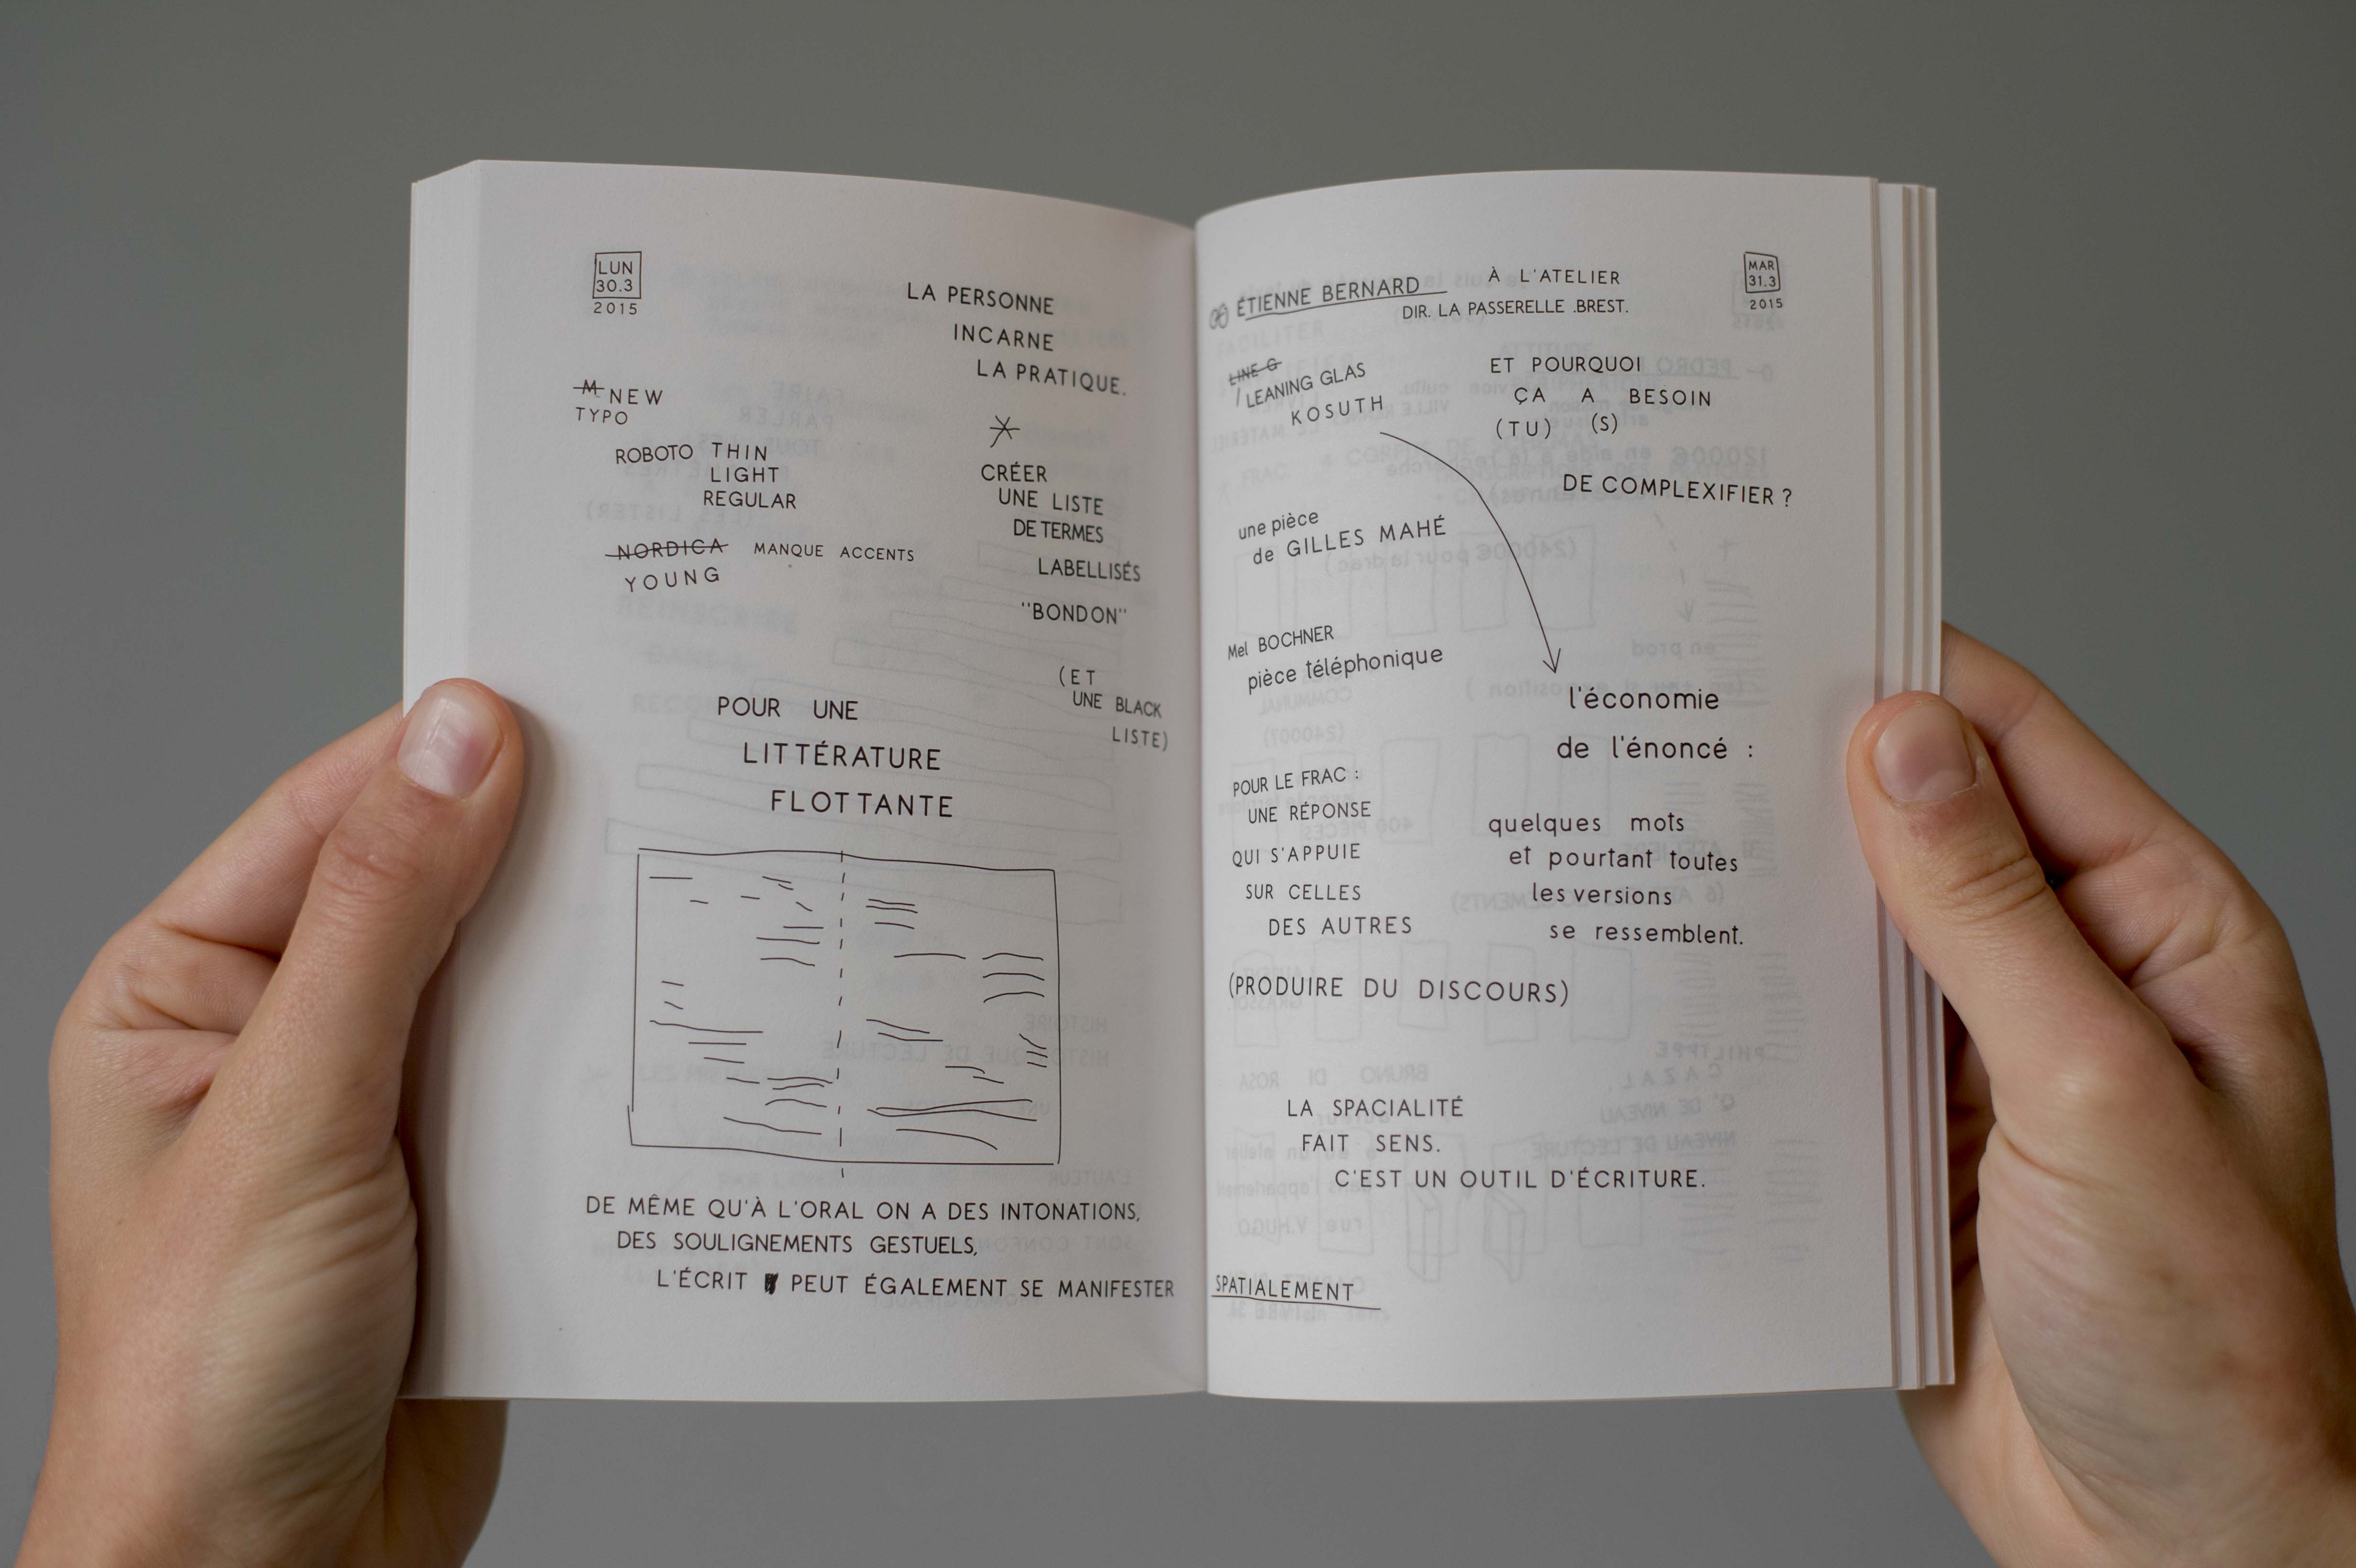 LUN
30.3
2015
LA PERSONNE
INCARNE
LA PRATIQUE.
M NEW
TYPO
ROBOTO THIN
LIGHT
REGULAR
NORDICA MANQUE ACCENTS
YOUNG
CRÉER
UNE LISTE
DE TERMES
LABELLISÉS
"BONDON"
(ET
UNE BLACK
LISTE)
POUR UNE
LITTÉRATURE
FLOTTANTE
DE MÊME QU'À L'ORAL ON A DES INTONATIONS,
DES SOULIGNEMENTS GESTUELS,
L'ÉCRIT PEUT ÉGALEMENT SE MANIFESTER SPATIALEMENT
ÉTIENNE BERNARD À L'ATELIER
DIR. LA PASSERELLE .BREST.
MAR
31.3
2015
LINE G
LEANING GLAS
KOSUTH
ET POURQUOI
ÇA A BESOIN
(TU) (S)
DE COMPLEXIFIER ?
une pièce
de GILLES MAHÉ
Mel BOCHNER
pièce téléphonique
l'économie
de l'énoncé :
quelques mots
et pourtant toutes
les versions
se ressemblent.
POUR LE FRAC :
UNE RÉPONSE
QUI S'APPUIE
SUR CELLES
DES AUTRES
(PRODUIRE DU DISCOURS)
LA SPACIALITÉ
FAIT SENS.
C'EST UN OUTIL D'ÉCRITURE.